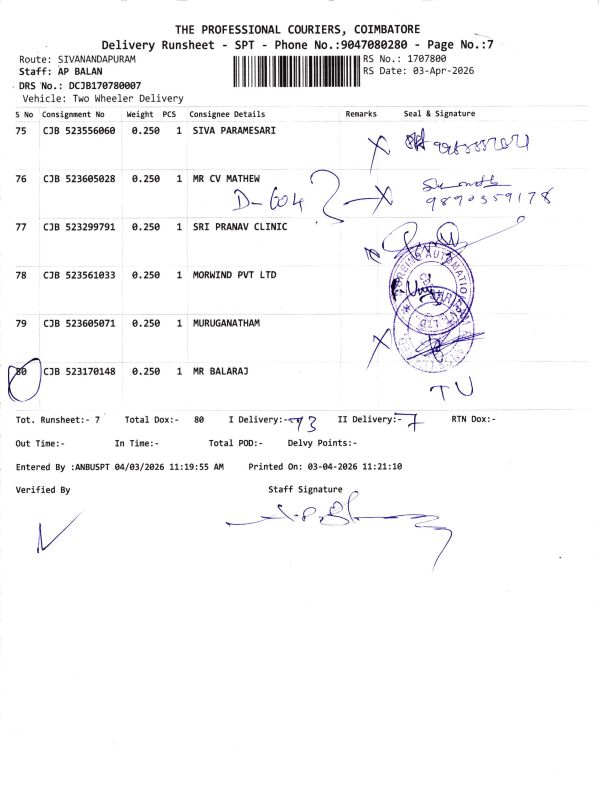 THE PROFESSIONAL COURIERS, COIMBATORE
Delivery Runsheet - SPT - Phone No.:9047080280 - Page No.:7
Route: SIVANANDAPURAM
RS No.: 1707800
Staff: AP BALAN
RS Date: 03-Apr-2026
DRS No.: DCJB170780007
Vehicle: Two Wheeler Delivery
S No Consignment No Weight PCS Consignee Details Remarks Seal & Signature
75 CJB 523556060 0.250 1 SIVA PARAMESARI
76 CJB 523605028 0.250 1 MR CV MATHEW
D-604
9890359178
77 CJB 523299791 0.250 1 SRI PRANAV CLINIC
78 CJB 523561033 0.250 1 MORWIND PVT LTD
79 CJB 523605071 0.250 1 MURUGANATHAM
80 CJB 523170148 0.250 1 MR BALARAJ
TU
Tot. Runsheet:- 7 Total Dox:- 80 I Delivery:- 73 II Delivery:- 7 RTN Dox:-
Out Time:- In Time:- Total POD:- Delvy Points:-
Entered By :ANBUSPT 04/03/2026 11:19:55 AM Printed On: 03-04-2026 11:21:10
Verified By Staff Signature